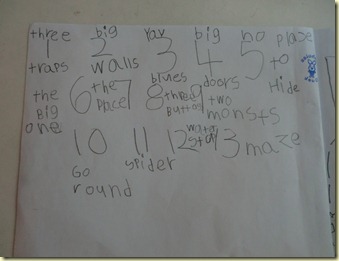 three big yav big no place
1 2 3 4 5 to
traps walls Hide
the 6 the 7 blues 8 three 9 doors
Big place button two
one monsts
10 11 12 13 maze
Go spider
round